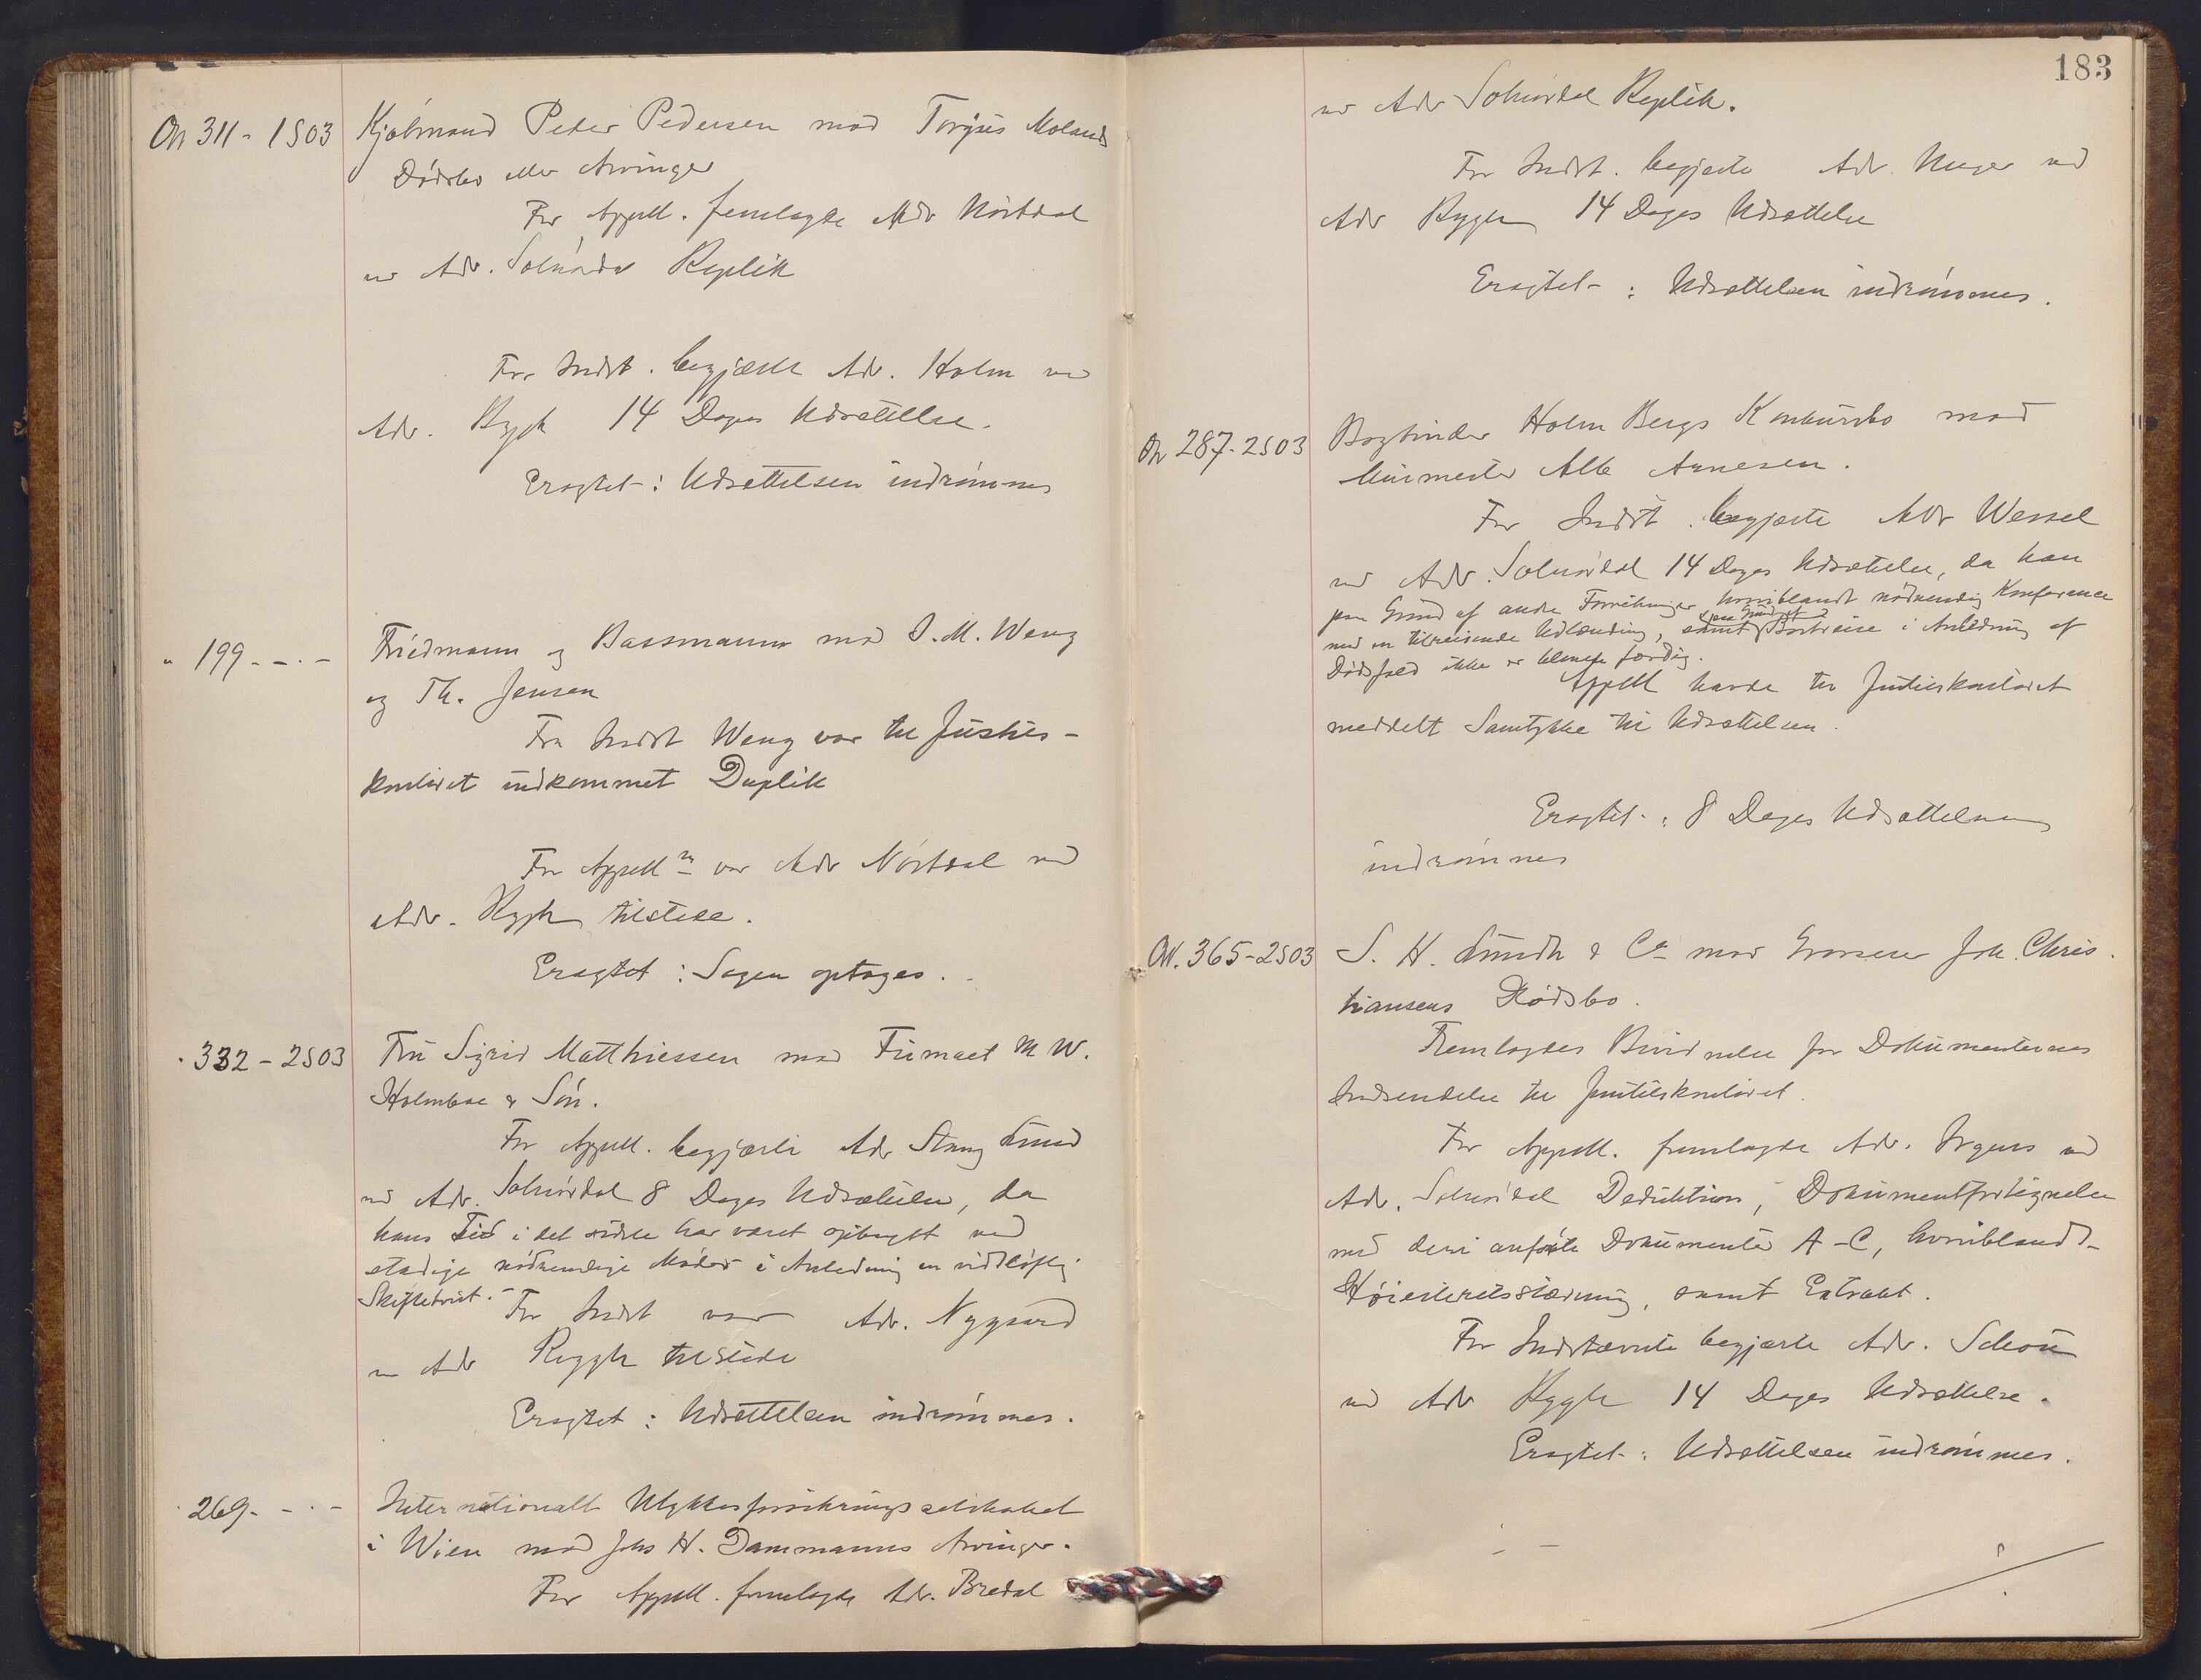 On 311 - 1S03 Kjøbmand Peder Pedersen mod Torjus Molands
Dødsbo eller Arvinger
For Appell. fremlagde Adv Nørdal
ved Adv. Solnørdal Replik
For Indst. begjærte Adv. Holm ved
Adv. Rygh 14 Dages Udsættelse.
Eragtet: Udsættelsen indrømmes
" 199 - - . - Friedmann og Bassmann mod O. M. Weng
og Th. Jensen
Fra Indst Weng var til Justits-
kontoret indkommet Duplik
For Appell.n var Adv Nørdal ved
Adv. Rygh tilstede.
Eragtet: Sagen optages.
" 332 - 2S03 Fru Sigrid Matthiessen mod Firmaet M W.
Holmboe & Søn.
For Appell. begjærte Adv Stang Lund
ved Adv. Solnørdal 8 Dages Udsættelse, da
hans Tid i det sidste har været optaget ved
stadige nødvendige Møder i Anledning en vidtløftig
Skiftetvist.
For Indst var Adv. Nygaard
ved Adv Rygh tilstede
Eragtet: Udsættelsen indrømmes.
" 269 - - . - Internationalt Ulykkesforsikringsselskabet
i Wien mod Johs H. Dammanns Arvinger.
For Appell. fremlagde Adv. Bredal
183
ved Adv Solnørdal Replik.
For Indst. begjærte Adv. Unger ved
Adv Rygh 14 Dages Udsættelse
Eragtet: Udsættelsen indrømmes.
On 287 - 2S03 Bogbinder Holm Bergs Konkursbo mod
Murmester Alb Arnesen.
For Indst. begjærte Adv Wessel
ved Adv. Solnørdal 14 Dages Udsættelse, da han
paa Grund af andre Forretninger, hvoriblandt nødvendig Konferance
med en tilreisende Udlænding, samt Bortreise i Anledning af
Dødsfald ikke er bleven færdig.
Appell havde til Justitskontoret
meddelt Samtykke til Udsættelsen.
Eragtet: 8 Dages Udsættelse
indrømmes
On. 365 - 2S03 S. H. Lundh & Co mod Grosserer Joh. Chris-
tiansens Dødsbo.
Fremlagdes Bevidnelse for Dokumenternes
Indsendelse til Justitskontoret.
For Appell. fremlagde Adv. Irgens ved
Adv. Solnørdal Deduktion, Dokumentfortegnelse
med deri anførte Dokumenter A-C, hvoriblandt
Høiesteretsstævning, samt Extrakt.
For Indstævnte begjærte Adv. Schou
ved Adv Rygh 14 Dages Udsættelse.
Eragtet: Udsættelsen indrømmes.